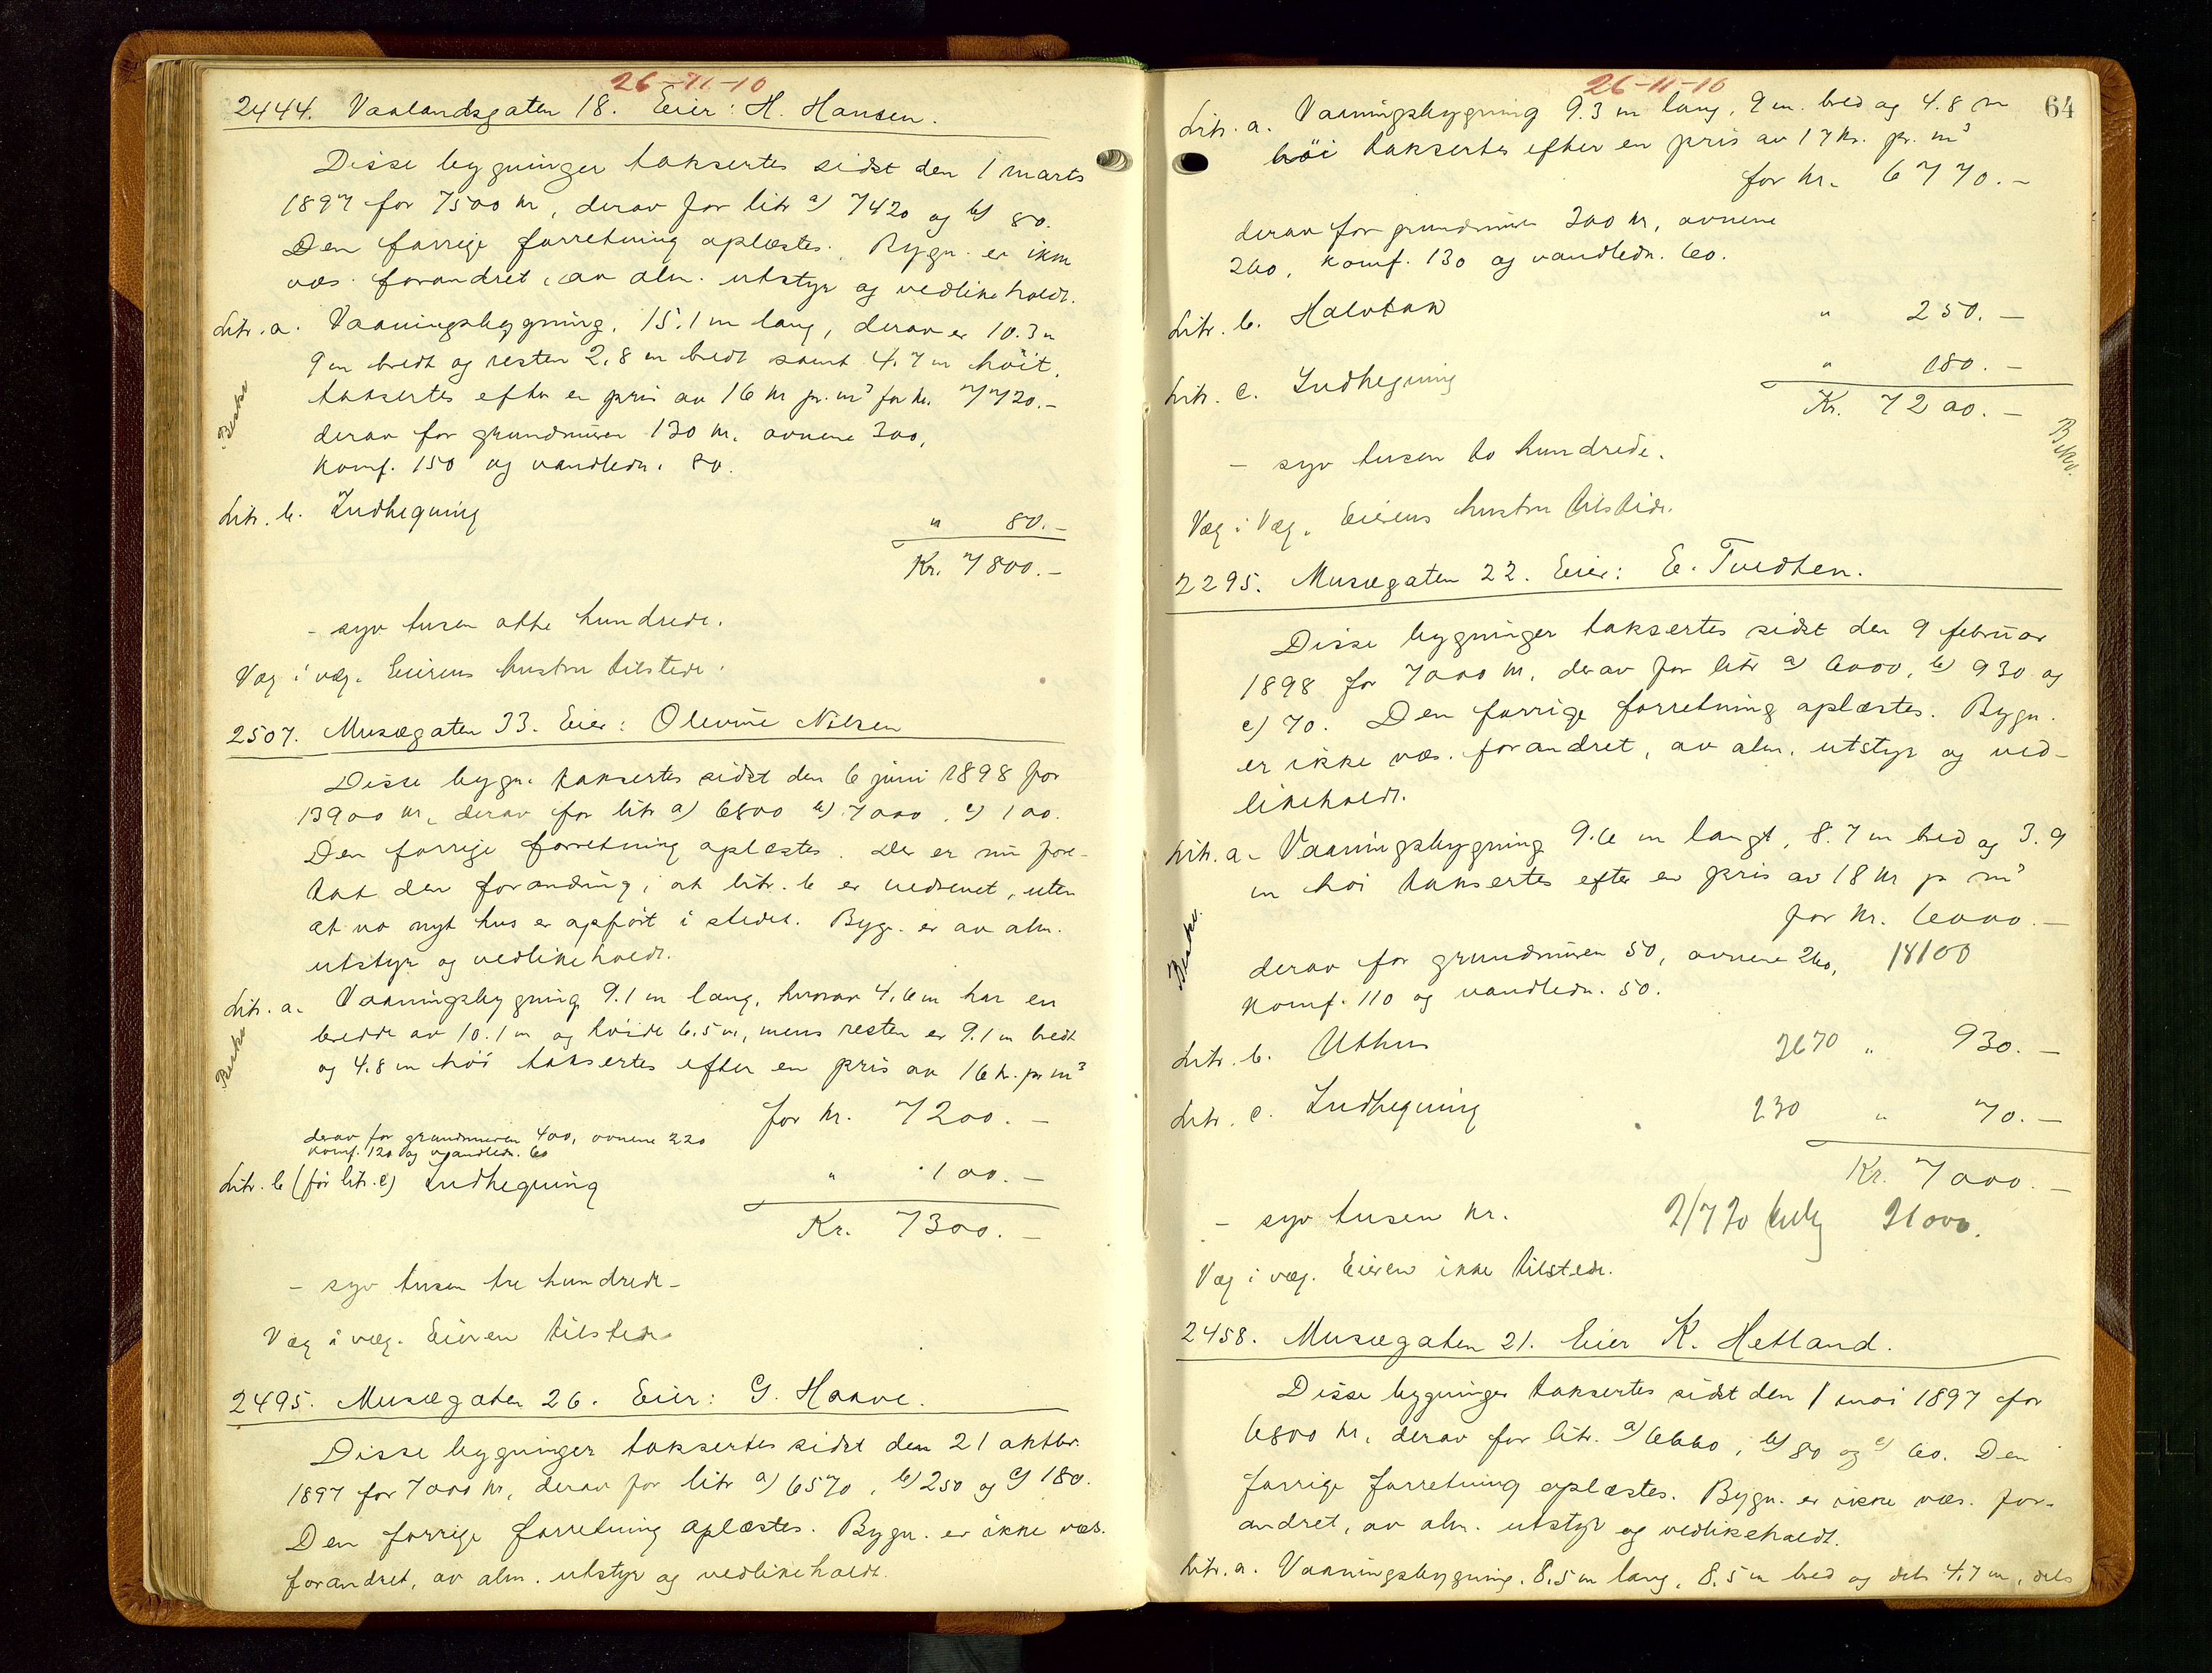 26-11-10
2444. Vaalandsgaten 18. Eier: H. Hansen.
Disse bygninger taksertes sidst den 1 marts
1897 for 7500 kr, derav for litr a) 7420 og b) 80.
Den forrige forretning oplæstes. Bygn. er ikke
væs. forandret, av alm. utstyr og vedlikeholdt.
Litr. a. Vaaningsbygning, 15.1 m lang, derav er 10.3 m
9 m bredt og resten 2,8 m bredt samt 4.7 m høit,
taksertes efter en pris av 16 kr pr. m³ for kr. 7720.-
derav for grundmuren 130 kr, ovnene 300,
komf. 150 og vandledn. 80.
Litr. b. Indhegning " 80.-
Kr. 7800.-
- syv tusen otte hundrede.
Væg i væg. Eierens hustru tilstede.
2507. Musægaten 33. Eier: Olevine Nilsen
Disse bygn. taksertes sidst den 6 juni 1898 for
13900 kr, derav for litr a) 6800 b) 7000, c) 100.
Den forrige forretning oplæstes. Der er nu fore-
tat den forandring, at litr. b er nedrevet, uten
at no nyt hus er opført i stedet. Bygn. er av alm.
utstyr og vedlikeholdt.
Litr. a. Vaaningsbygning 9.1 m lang, hvorav 4.6 m har en
bredde av 10.1 m og høide 6.5 m, mens resten er 9.1 m bredt
og 4.8 m høi taksertes efter en pris av 16 kr. pr m³
for kr. 7200.-
derav for grundmuren 400, ovnene 220
komf. 120 og vandledn. 60
Litr. b (før litr. c) Indhegning " 100.-
Kr. 7300.-
- syv tusen tre hundrede -
Væg i væg. Eieren tilstede
2495. Musægaten 26. Eier: G. Haave.
Disse bygninger taksertes sidst den 21 oktbr.
1897 for 7000 kr, derav for litr a) 6570, b) 250 og c) 180.
Den forrige forretning oplæstes. Bygn. er ikke væs.
forandret, av alm. utstyr og vedlikeholdt.
Beskr.
Beskr.
26-11-10
64
Litr. a. Vaaningsbygning 9.3 m lang, 9 m. bred og 4.8 m
høi taksertes efter en pris av 17 kr. pr. m³
for kr. 6770.-
derav for grundmuren 300 kr, ovnene
260, komf. 130 og vandledn. 60.
Litr. b. Halvtak " 250.-
Litr. c. Indhegning " 180.-
Kr. 7200.-
- syv tusen to hundrede.
Væg i Væg. Eierens hustru tilstede.
2295. Musægaten 22. Eier: E. Tvedten.
Disse bygninger taksertes sidst den 9 februar
1898 for 7000 kr, derav for litr a) 6000, b) 930 og
c) 70. Den forrige forretning oplæstes. Bygn.
er ikke væs. forandret, av alm. utstyr og ved-
likeholdt.
Litr. a. Vaaningsbygning 9.6 m langt, 8.7 m bred og 3.9
m høi taksertes efter en pris av 18 kr pr m³
for kr. 6000.-
derav for grundmuren 50, ovnene 260, 18100
komf. 110 og vandledn. 50.
Litr. b. Uthus 2670 " 930.-
Litr. c. Indhegning 230 " 70.-
Kr. 7000.-
- syv tusen kr. 2/7 20 21000.
Væg i væg. Eieren ikke tilstede.
2458. Musægaten 21. Eier K. Hetland.
Disse bygninger taksertes sidst den 1 mai 1897 for
6800 kr, derav for litr. a) 6660, b) 80 og c) 60. Den
forrige forretning oplæstes. Bygn. er ikke væs. for-
andret, av alm. utstyr og vedlikeholdt.
Litr. a. Vaaningsbygning. 8.5 m lang, 8.5 m bred og dels 4.7 m, dels
Beskr.
Beskr.